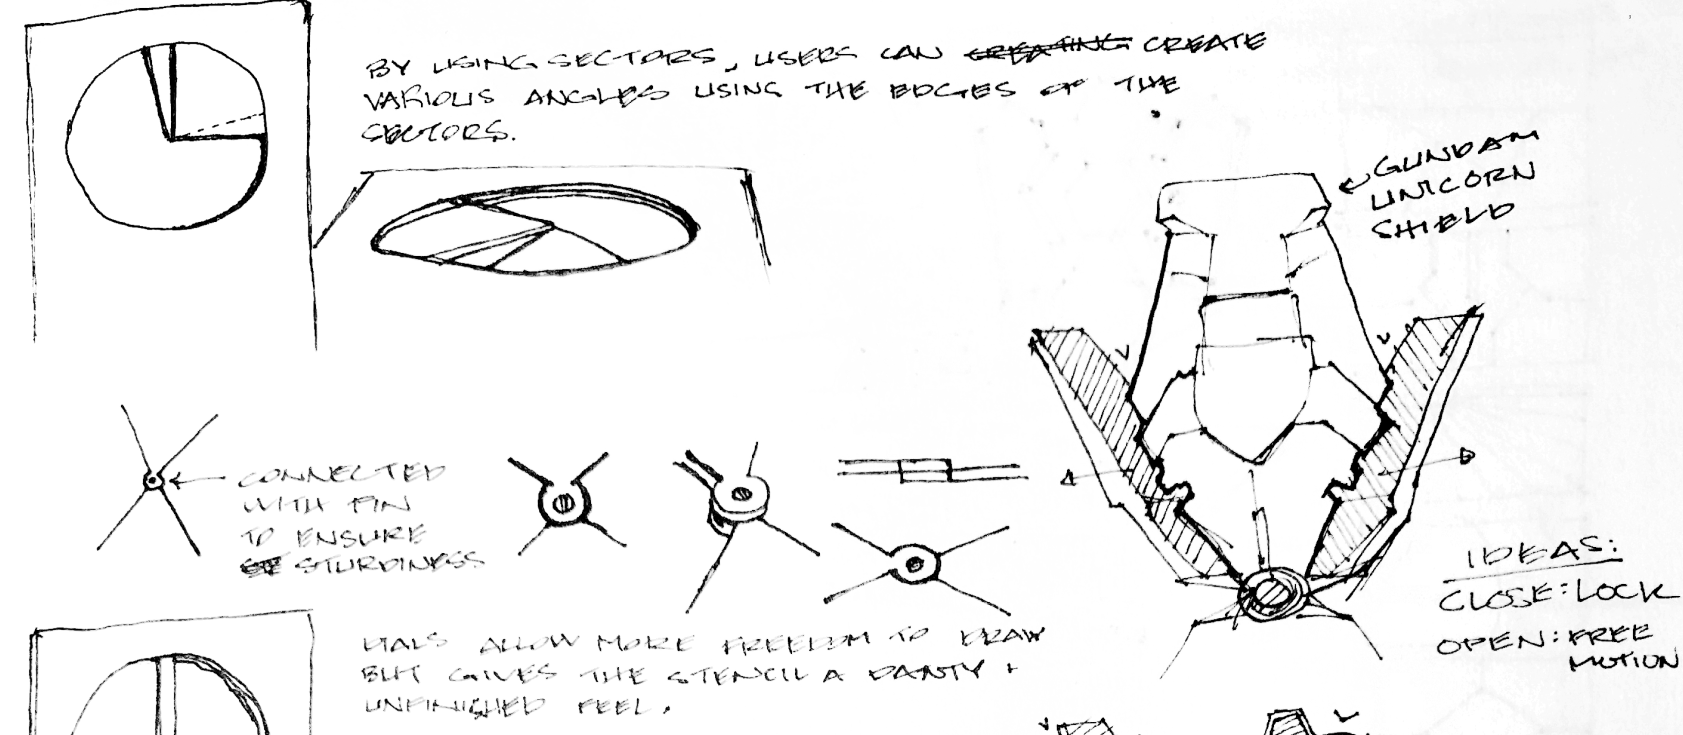 BY USING SECTORS, USERS CAN CREATING CREATE
VARIOUS ANGLES USING THE EDGES OF THE
SECTORS.
GUNDAM
UNICORN
SHIELD
CONNECTED
WITH PIN
TO ENSURE
STURDINESS
IDEAS:
CLOSE: LOCK
OPEN: FREE
MOTION
DIALS ALLOW MORE FREEDOM TO DRAW
BUT GIVES THE STENCIL A DANTY +
UNFINISHED FEEL.